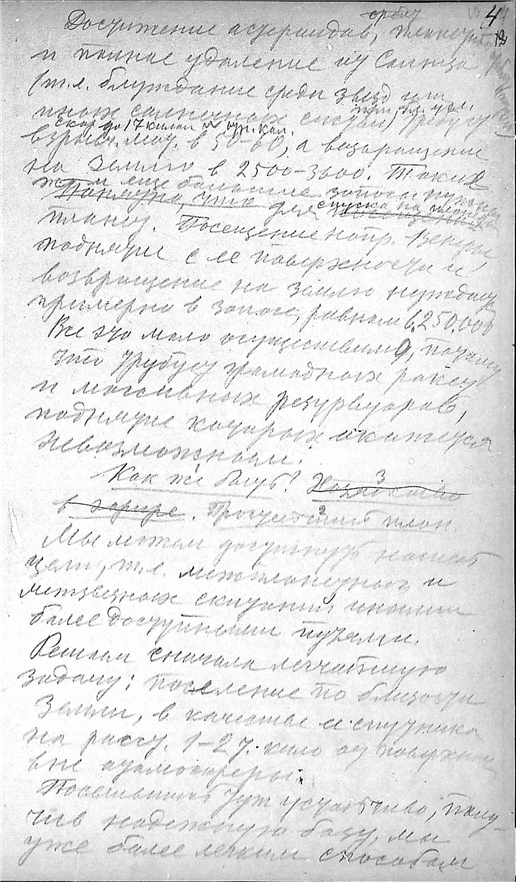 4
орбит
Достижение астероидов, планет
и полное удаление из Солнца
(т.е. блуждание среди звезд или
иных солнечных систем, требует
скор. до 17 килом
взрывч. мат. в 50-60, а возвращение
на Землю в 2500-3600. Таких
же и еще большие запасы нужны
для спуска на планеты
планет. Посещение напр. Венеры,
поднятие с ее поверхности и
возвращение на Землю нуждается
примерно в запасе, равном 1.250.000
Все это мало осуществимо, потому
что требует громадных ракет
и массивных резервуаров,
поднятие которых окажется
невозможным.
Как же быть? Хозяйство
в эфире. Простейший план
Мы можем достигнуть нашей
цели, т.е. межпланетных и
межзвездных скитаний иными
более доступными путями.
Решаем сначала легчайшую
задачу: поселение по близости
Земли, в качестве ее спутника
на расст. 1-2 т. кило от поверхности
вне атмосферы.
Поселившись тут устойчиво, полу-
чив надежную базу, мы
уже более легким способом